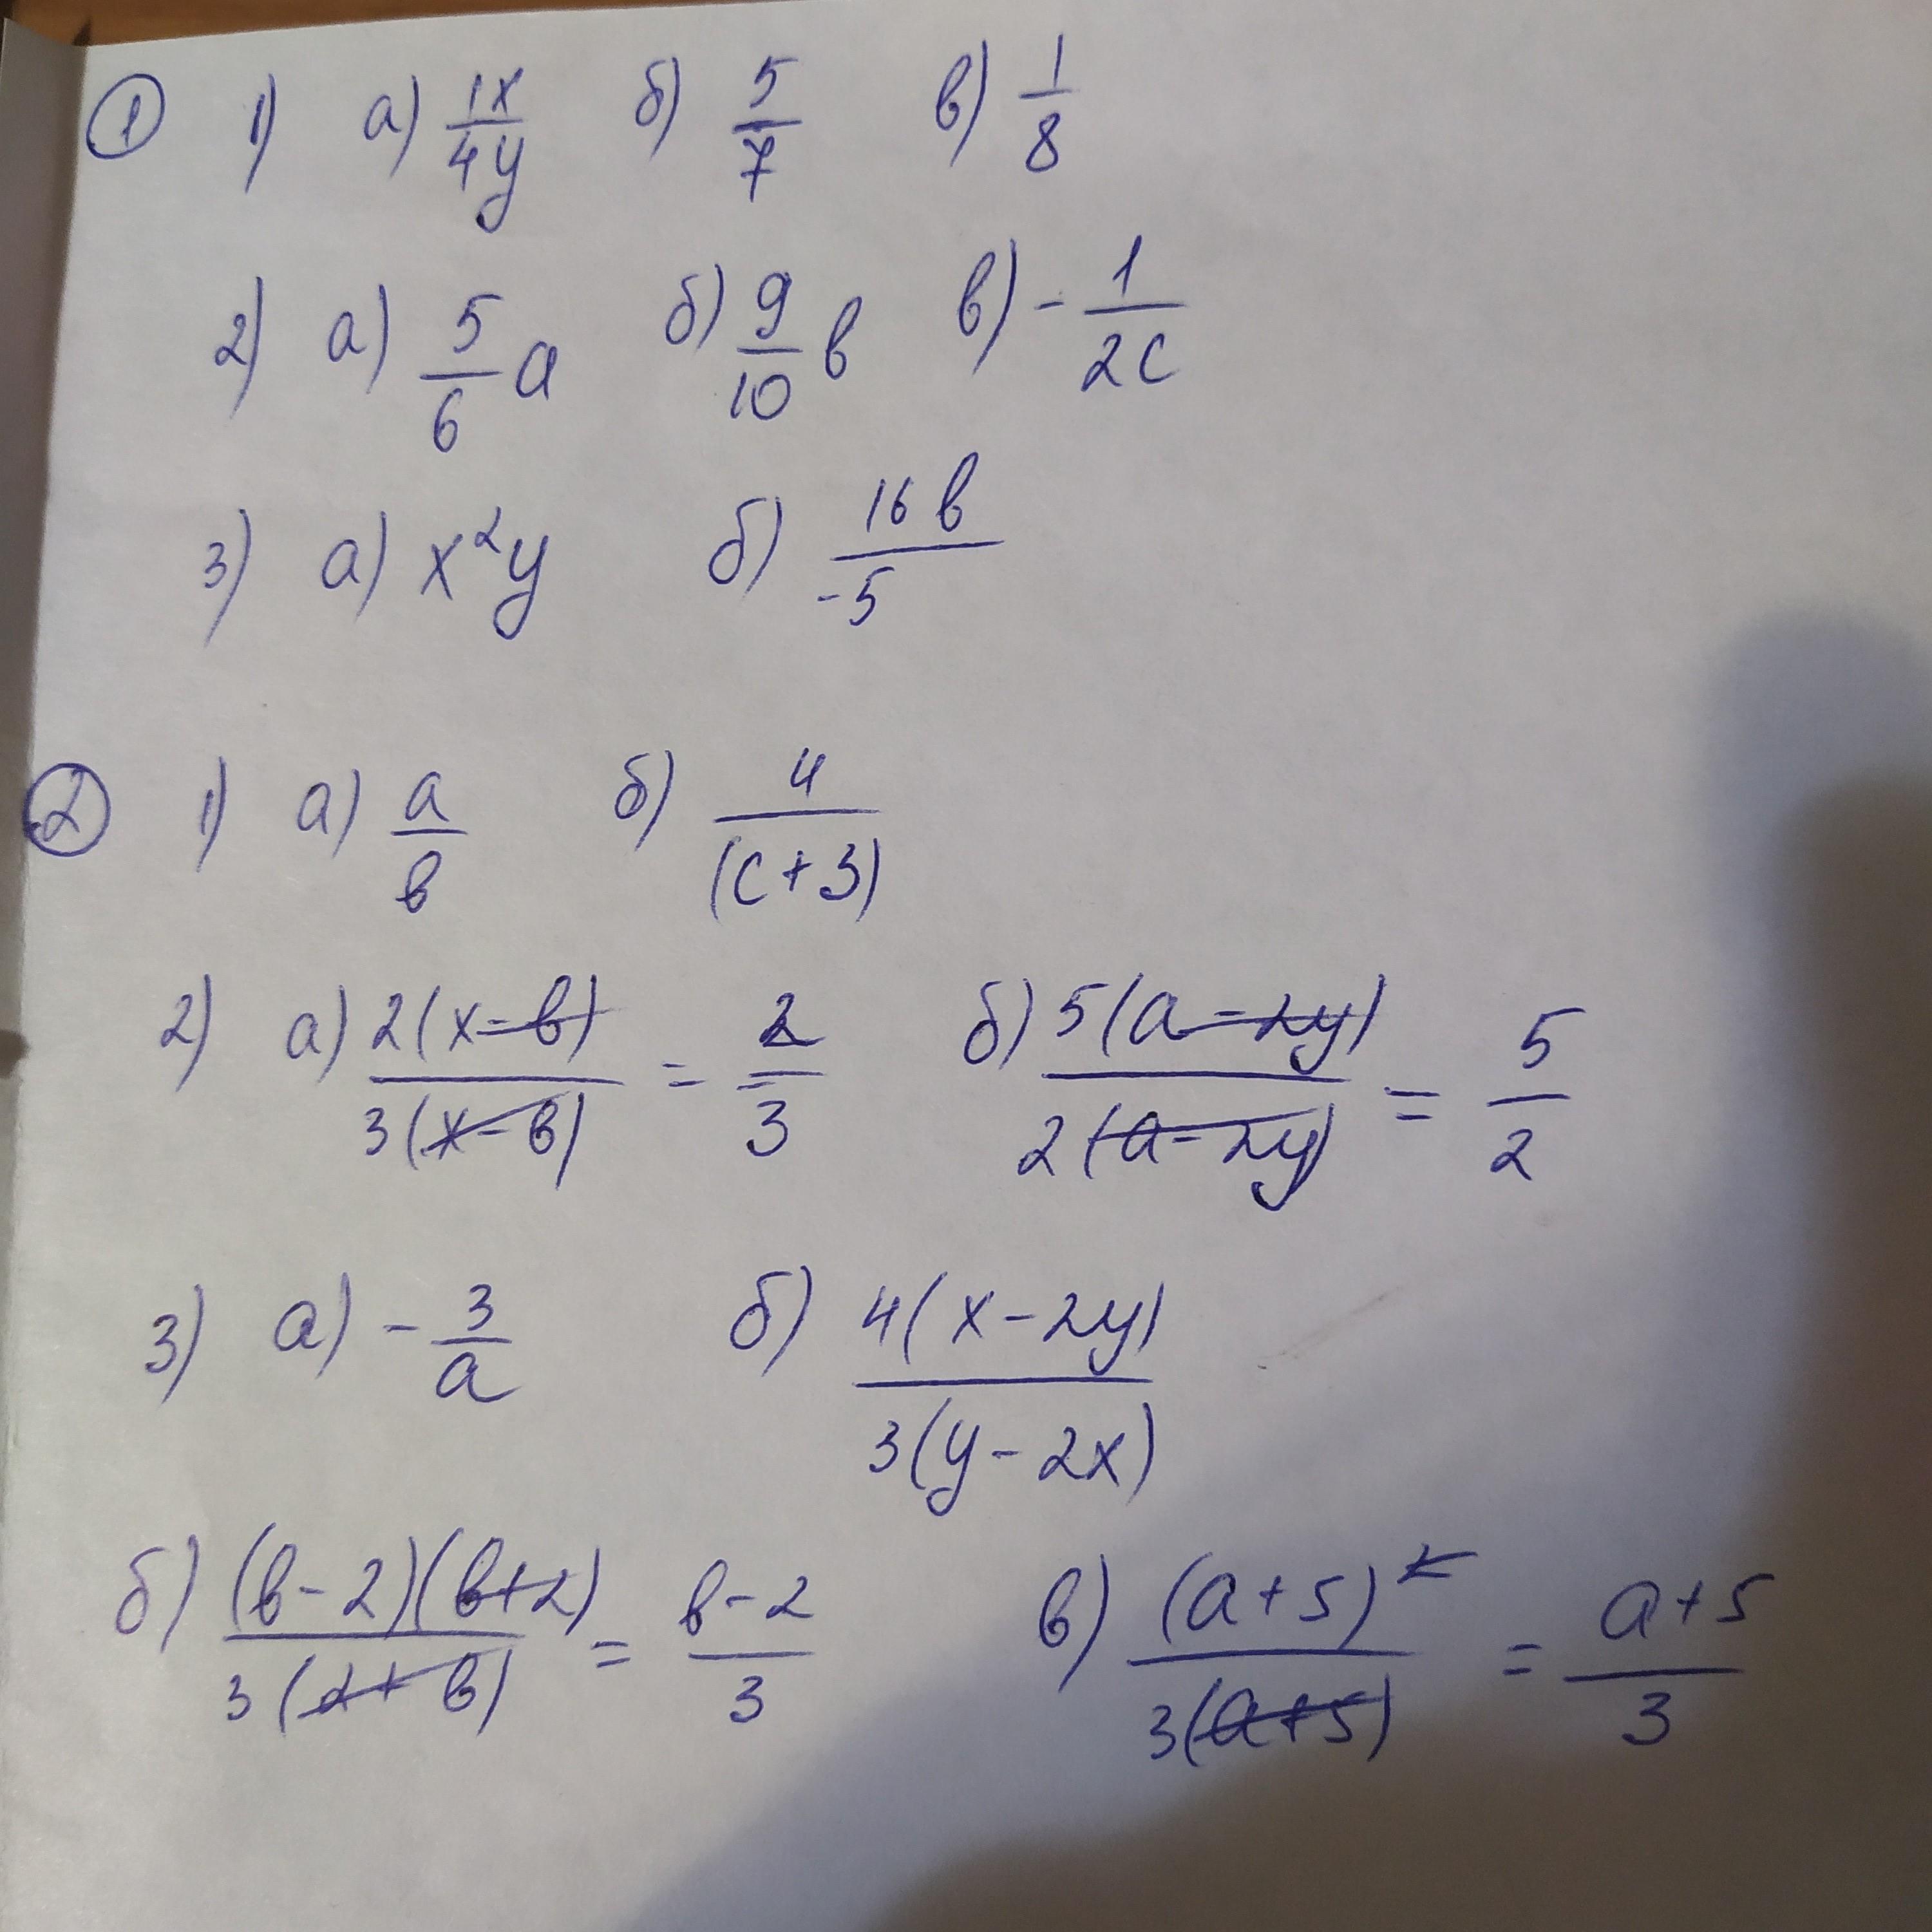 ① 1) а) 1x/4y б) 5/7 в) 1/8
2) а) 5/6 a б) 9/10 в в) - 1/2c
3) а) x²y б) 16в/-5
② 1) а) a/в б) 4/(c+3)
2) а) 2(x-в)/3(x-в) = 2/3 б) 5(a-2y)/2(a-2y) = 5/2
3) а) - 3/a б) 4(x-2y)/3(y-2x)
б) (в-2)(в+2)/3(2+в) = в-2/3 в) (a+5)²/3(a+5) = a+5/3